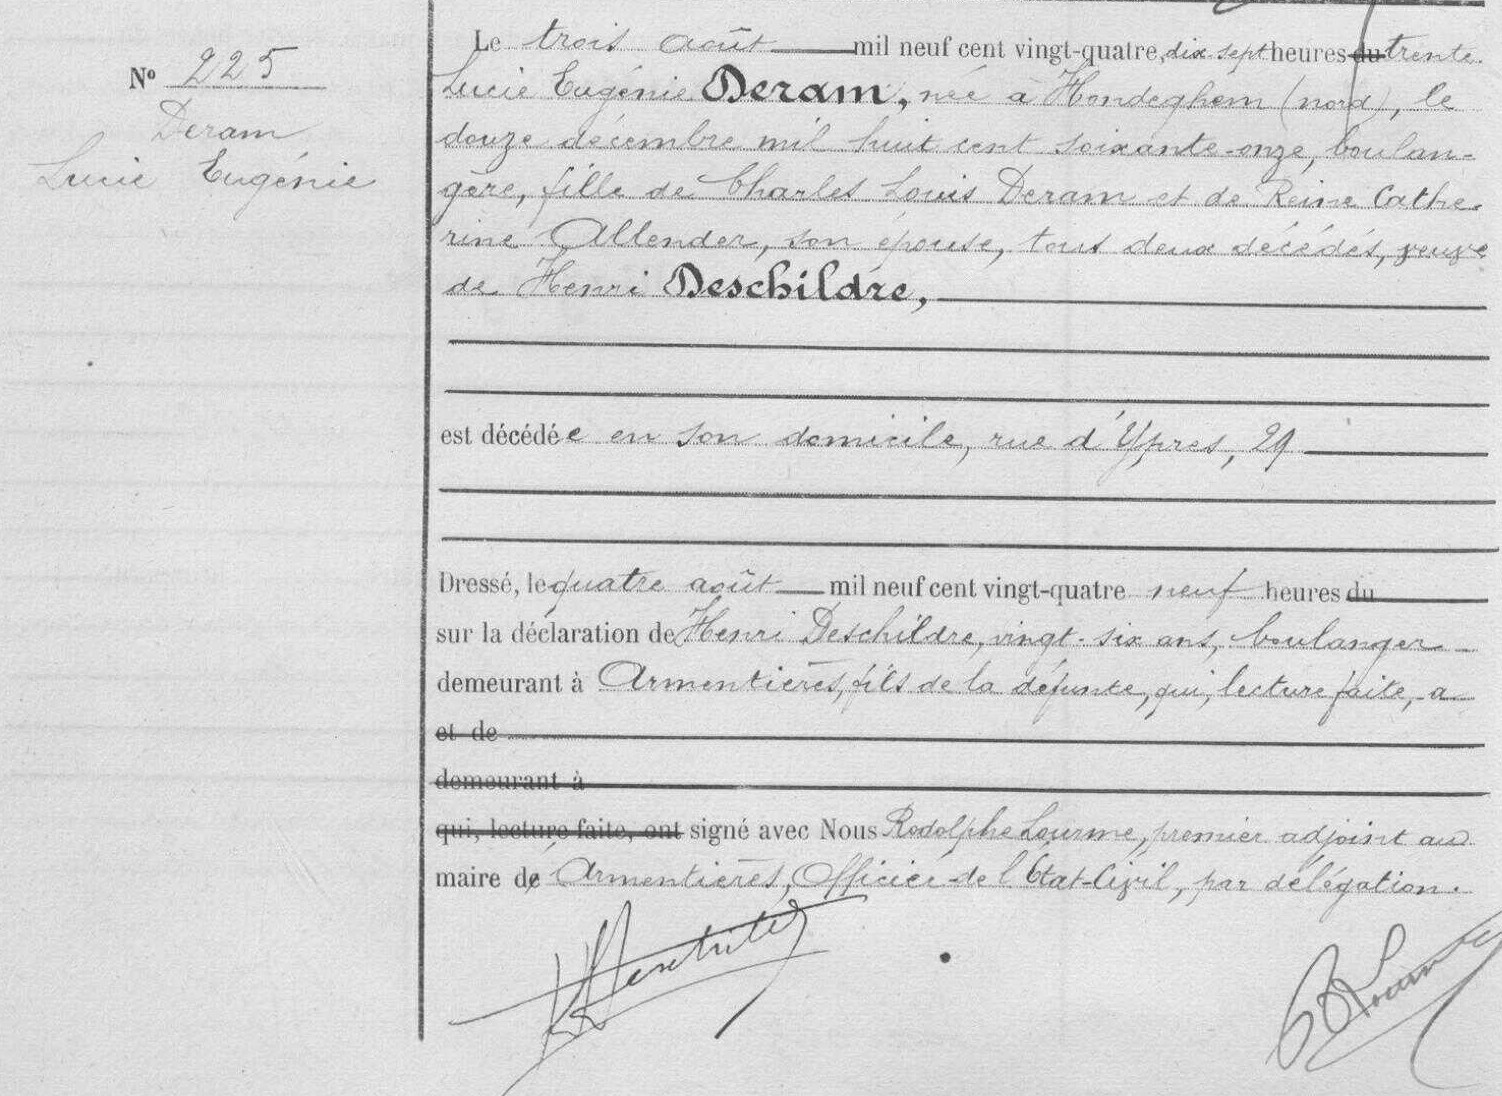 N° 225
Deram
Lucie Eugénie
Le trois août mil neuf cent vingt-quatre, dix sept heures du trente
Lucie Eugénie Deram, née à Hondeghem (nord), le
douze décembre mil huit cent soixante-onze, boulan-
gère, fille de Charles Louis Deram et de Reine Cathe-
rine Allender, son épouse, tous deux décédés, veuve
de Henri Deschildre,
est décédée en son domicile, rue d'Ypres, 29
Dressé, le quatre août mil neuf cent vingt-quatre neuf heures du
sur la déclaration de Henri Deschildre, vingt-six ans, boulanger
demeurant à Armentières, fils de la défunte, qui, lecture faite, a
et de
demeurant à
qui, lecture faite, ont signé avec Nous Rodolphe Lourme, premier adjoint au
maire de Armentières, Officier de l'État-Civil, par délégation.